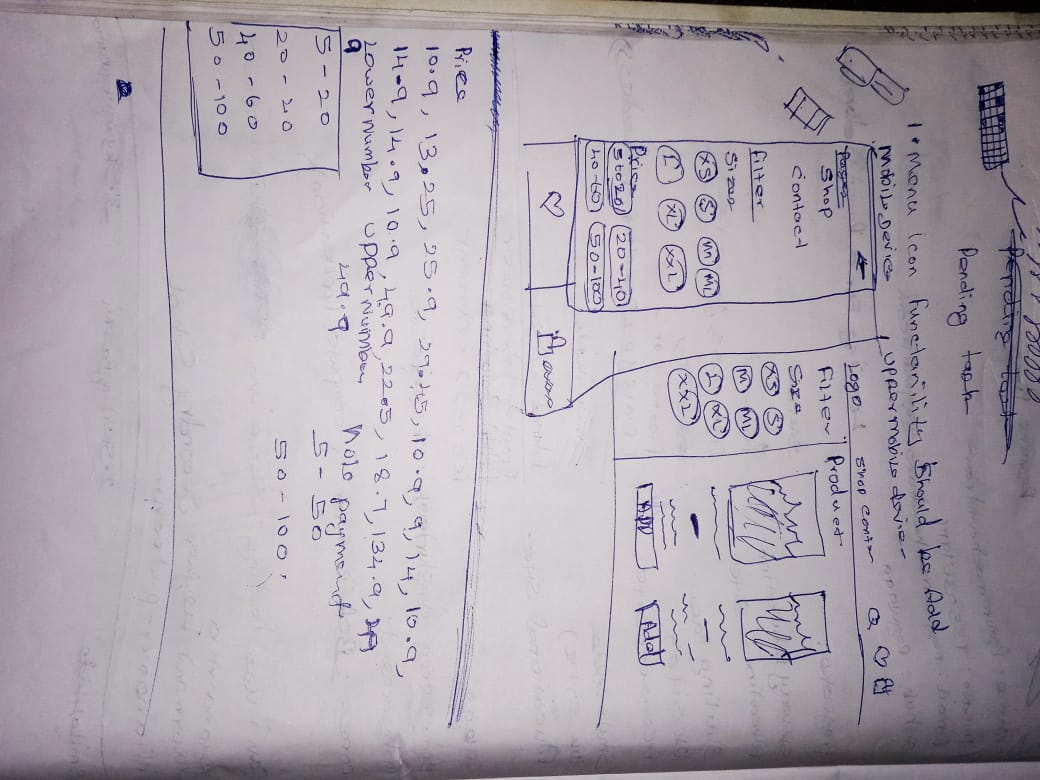 Pending task
Pending task
1. Menu icon Functanility Should be Add
Mobile Device
Pages
Shop
Contact
Filter
Sizes
XS S M ML
L XL XXL
Price
5 to 20 20-40
40-60 50-100
Upper mobile device
Logo Shop Contact
Filter
Size
XS S
M ML
L XL
XXL
Product
ADD Add
Price
10.9, 13.25, 25.9, 29.45, 10.9, 9, 14, 10.9,
14.9, 14.9, 10.9, 49.9, 22.5, 18.7, 134.9, 49
Lower Number Upper Number
9 49.9
5 - 20
20 - 40
40 - 60
50 - 100
payment
5 - 50
50 - 100